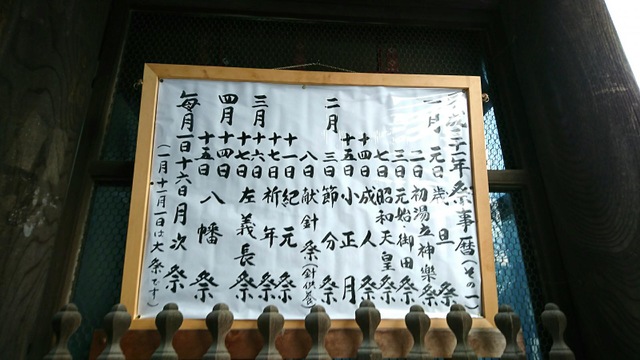 平成三十一年祭事暦(その一)
一月 元日 歳旦祭
二日 初湯立神楽祭
三日 元始・御田祭
七日 昭和天皇祭
十四日 成人祭
十五日 小正月
二月 三日 節分祭
八日 献針祭(針供養)
十一日 紀元祭
十七日 祈年祭
三月 十六日
十七日 左義長祭
四月 十四日
十五日 八幡祭
毎月一日十六日月次祭
(一月十一月一日は大祭です)